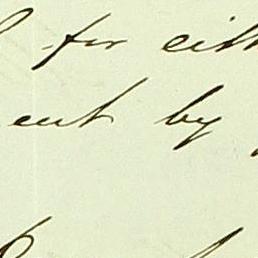 for eith
ent by